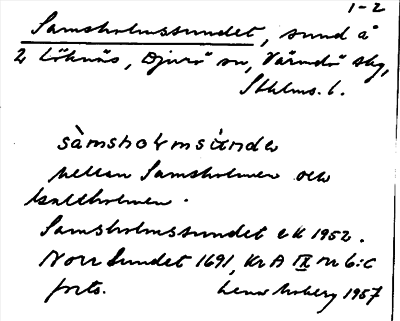 1-2
Samsholmssundet, sund å
2 Löknäs, Djurö sn, Värmdö skg,
Sthlms. l.
sàmshoḷmsúndə
mellan Samsholmen och
Kalkholmen.
Samsholmssundet ek 1952.
Norr Sundet 1691, Kr A IX nr 6:c
forts. Lena Moberg 1957